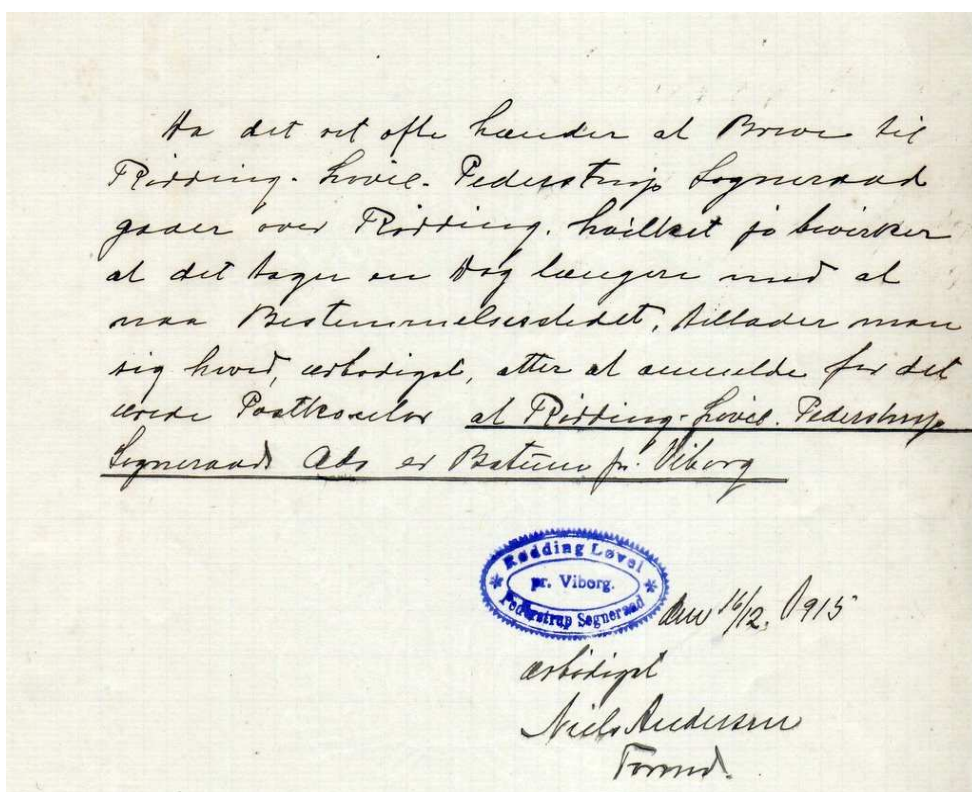 Da det ret ofte hænder at Breve til
Rödding-Lövel-Pederstrup Sogneraad
gaaer over Rödding, hvilket jo bevirker
at det tager en Dag længere med at
naa Bestemmelsesstedet, tillader man
sig hved, ærbödigst, atter at anmelde for det
ærede Postkontor at Rödding-Lövel-Pederstrup
Sogneraads Ads er Batum pr. Viborg
Rødding Løvel
pr. Viborg.
Pederstrup Sogneraad
den 16/12. 1915
ærbödigst
Niels Andersen
Formd.